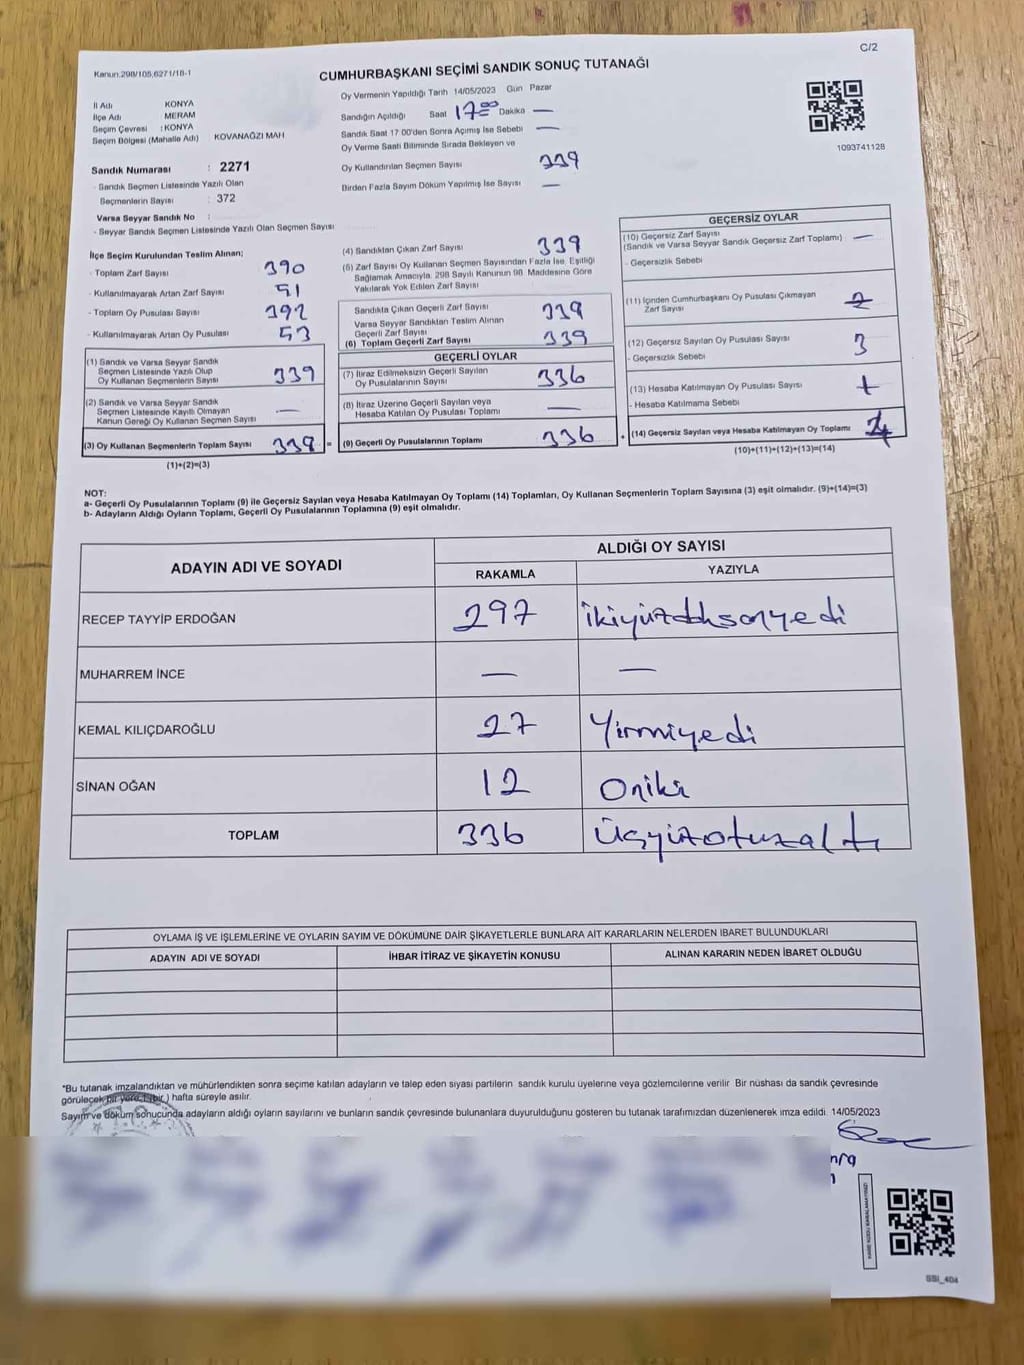 C/2
Kanun.298/105,6271/18-1
CUMHURBAŞKANI SEÇİMİ SANDIK SONUÇ TUTANAĞI
İl Adı KONYA
İlçe Adı MERAM
Seçim Çevresi : KONYA
Seçim Bölgesi (Mahalle Adı) KOVANAĞZI MAH
Sandık Numarası : 2271
- Sandık Seçmen Listesinde Yazılı Olan
Seçmenlerin Sayısı : 372
Varsa Seyyar Sandık No :
- Seyyar Sandık Seçmen Listesinde Yazılı Olan Seçmen Sayısı
Oy Vermenin Yapıldığı Tarih 14/05/2023 Gün Pazar
Sandığın Açıldığı Saat 17 00 Dakika —
Sandık Saat 17 00'den Sonra Açımış İse Sebebi —
Oy Verme Saati Bitiminde Sırada Bekleyen ve
Oy Kullandırılan Seçmen Sayısı 339
Birden Fazla Sayım Döküm Yapılmış İse Sayısı —
1093741128
İlçe Seçim Kurulundan Teslim Alınan;
- Toplam Zarf Sayısı 390
- Kullanılmayarak Artan Zarf Sayısı 51
- Toplam Oy Pusulası Sayısı 392
- Kullanılmayarak Artan Oy Pusulası 53
(1) Sandık ve Varsa Seyyar Sandık
Seçmen Listesinde Yazılı Olup
Oy Kullanan Seçmenlerin Sayısı 339
(2) Sandık ve Varsa Seyyar Sandık
Seçmen Listesinde Kayıtlı Olmayan
Kanun Gereği Oy Kullanan Seçmen Sayısı —
(3) Oy Kullanan Seçmenlerin Toplam Sayısı 339 =
(1)+(2)=(3)
(4) Sandıktan Çıkan Zarf Sayısı 339
(5) Zarf Sayısı Oy Kullanan Seçmen Sayısından Fazla İse, Eşitliği
Sağlamak Amacıyla, 298 Sayılı Kanunun 98. Maddesine Göre
Yakılarak Yok Edilen Zarf Sayısı
Sandıkta Çıkan Geçerli Zarf Sayısı 339
Varsa Seyyar Sandıktan Teslim Alınan
Geçerli Zarf Sayısı
(6) Toplam Geçerli Zarf Sayısı 339
GEÇERLİ OYLAR
(7) İtiraz Edilmeksizin Geçerli Sayılan
Oy Pusulalarının Sayısı 336
(8) İtiraz Üzerine Geçerli Sayılan veya
Hesaba Katılan Oy Pusulası Toplamı —
(9) Geçerli Oy Pusulalarının Toplamı 336 +
GEÇERSİZ OYLAR
(10) Geçersiz Zarf Sayısı
(Sandık ve Varsa Seyyar Sandık Geçersiz Zarf Toplamı) —
- Geçersizlik Sebebi
(11) İçinden Cumhurbaşkanı Oy Pusulası Çıkmayan
Zarf Sayısı
(12) Geçersiz Sayılan Oy Pusulası Sayısı 3
- Geçersizlik Sebebi
(13) Hesaba Katılmayan Oy Pusulası Sayısı
- Hesaba Katılmama Sebebi
(14) Geçersiz Sayılan veya Hesaba Katılmayan Oy Toplamı
(10)+(11)+(12)+(13)=(14)
NOT:
a- Geçerli Oy Pusulalarının Toplamı (9) ile Geçersiz Sayılan veya Hesaba Katılmayan Oy Toplamı (14) Toplamları, Oy Kullanan Seçmenlerin Toplam Sayısına (3) eşit olmalıdır. (9)+(14)=(3)
b- Adayların Aldığı Oyların Toplamı, Geçerli Oy Pusulalarının Toplamına (9) eşit olmalıdır.
ADAYIN ADI VE SOYADI ALDIĞI OY SAYISI
RAKAMLA YAZIYLA
RECEP TAYYİP ERDOĞAN 297 ikiyüzdoksanyedi
MUHARREM İNCE — —
KEMAL KILIÇDAROĞLU 27 Yirmiyedi
SİNAN OĞAN 12 Oniki
TOPLAM 336 Üçyüzotuzaltı
OYLAMA İŞ VE İŞLEMLERİNE VE OYLARIN SAYIM VE DÖKÜMÜNE DAİR ŞİKAYETLERLE BUNLARA AİT KARARLARIN NELERDEN İBARET BULUNDUKLARI
ADAYIN ADI VE SOYADI İHBAR İTİRAZ VE ŞİKAYETİN KONUSU ALINAN KARARIN NEDEN İBARET OLDUĞU
*Bu tutanak imzalandıktan ve mühürlendikten sonra seçime katılan adayların ve talep eden siyasi partilerin sandık kurulu üyelerine veya gözlemcilerine verilir Bir nüshası da sandık çevresinde
görülecek bir yere 1 (bir ) hafta süreyle asılır.
Sayım ve döküm sonucunda adayların aldığı oyların sayılarını ve bunların sandık çevresinde bulunanlara duyurulduğunu gösteren bu tutanak tarafımızdan düzenlenerek imza edildi. 14/05/2023